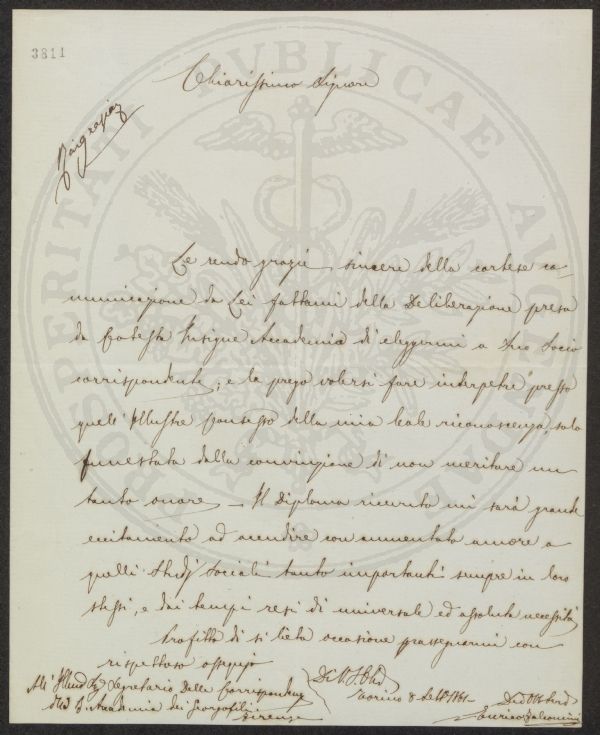 3811
Chiarissimo Signore
Ringraziar
PROSPERITATI PUBLICAE AUGENDAE
Le rendo grazie sincere della cortese co-
municazione da Lei fattami della Deliberazione presa
da Codesta Insigne Accademia di eleggermi a Suo Socio
corrispondente; e la prego volersi fare interpetre presso
quell'Illustre Consesso della mia leale riconoscenza, solo
funestata dalla convinzione di non meritare un
tanto onore — Il Diploma ricevuto mi sarà grande
eccitamento ad accudire con aumentato amore a
quelli Studj Sociali tanto importanti sempre in loro
stessi, e dai tempi resi di universale ed assoluta necessità
Profitto di sì lieta occasione per segnarmi con
rispettoso ossequio
Di V. S. Ill.
All' Segretario delle Corrispondenze
dell' I. Accademia dei Georgofili
Firenze
Torino 8